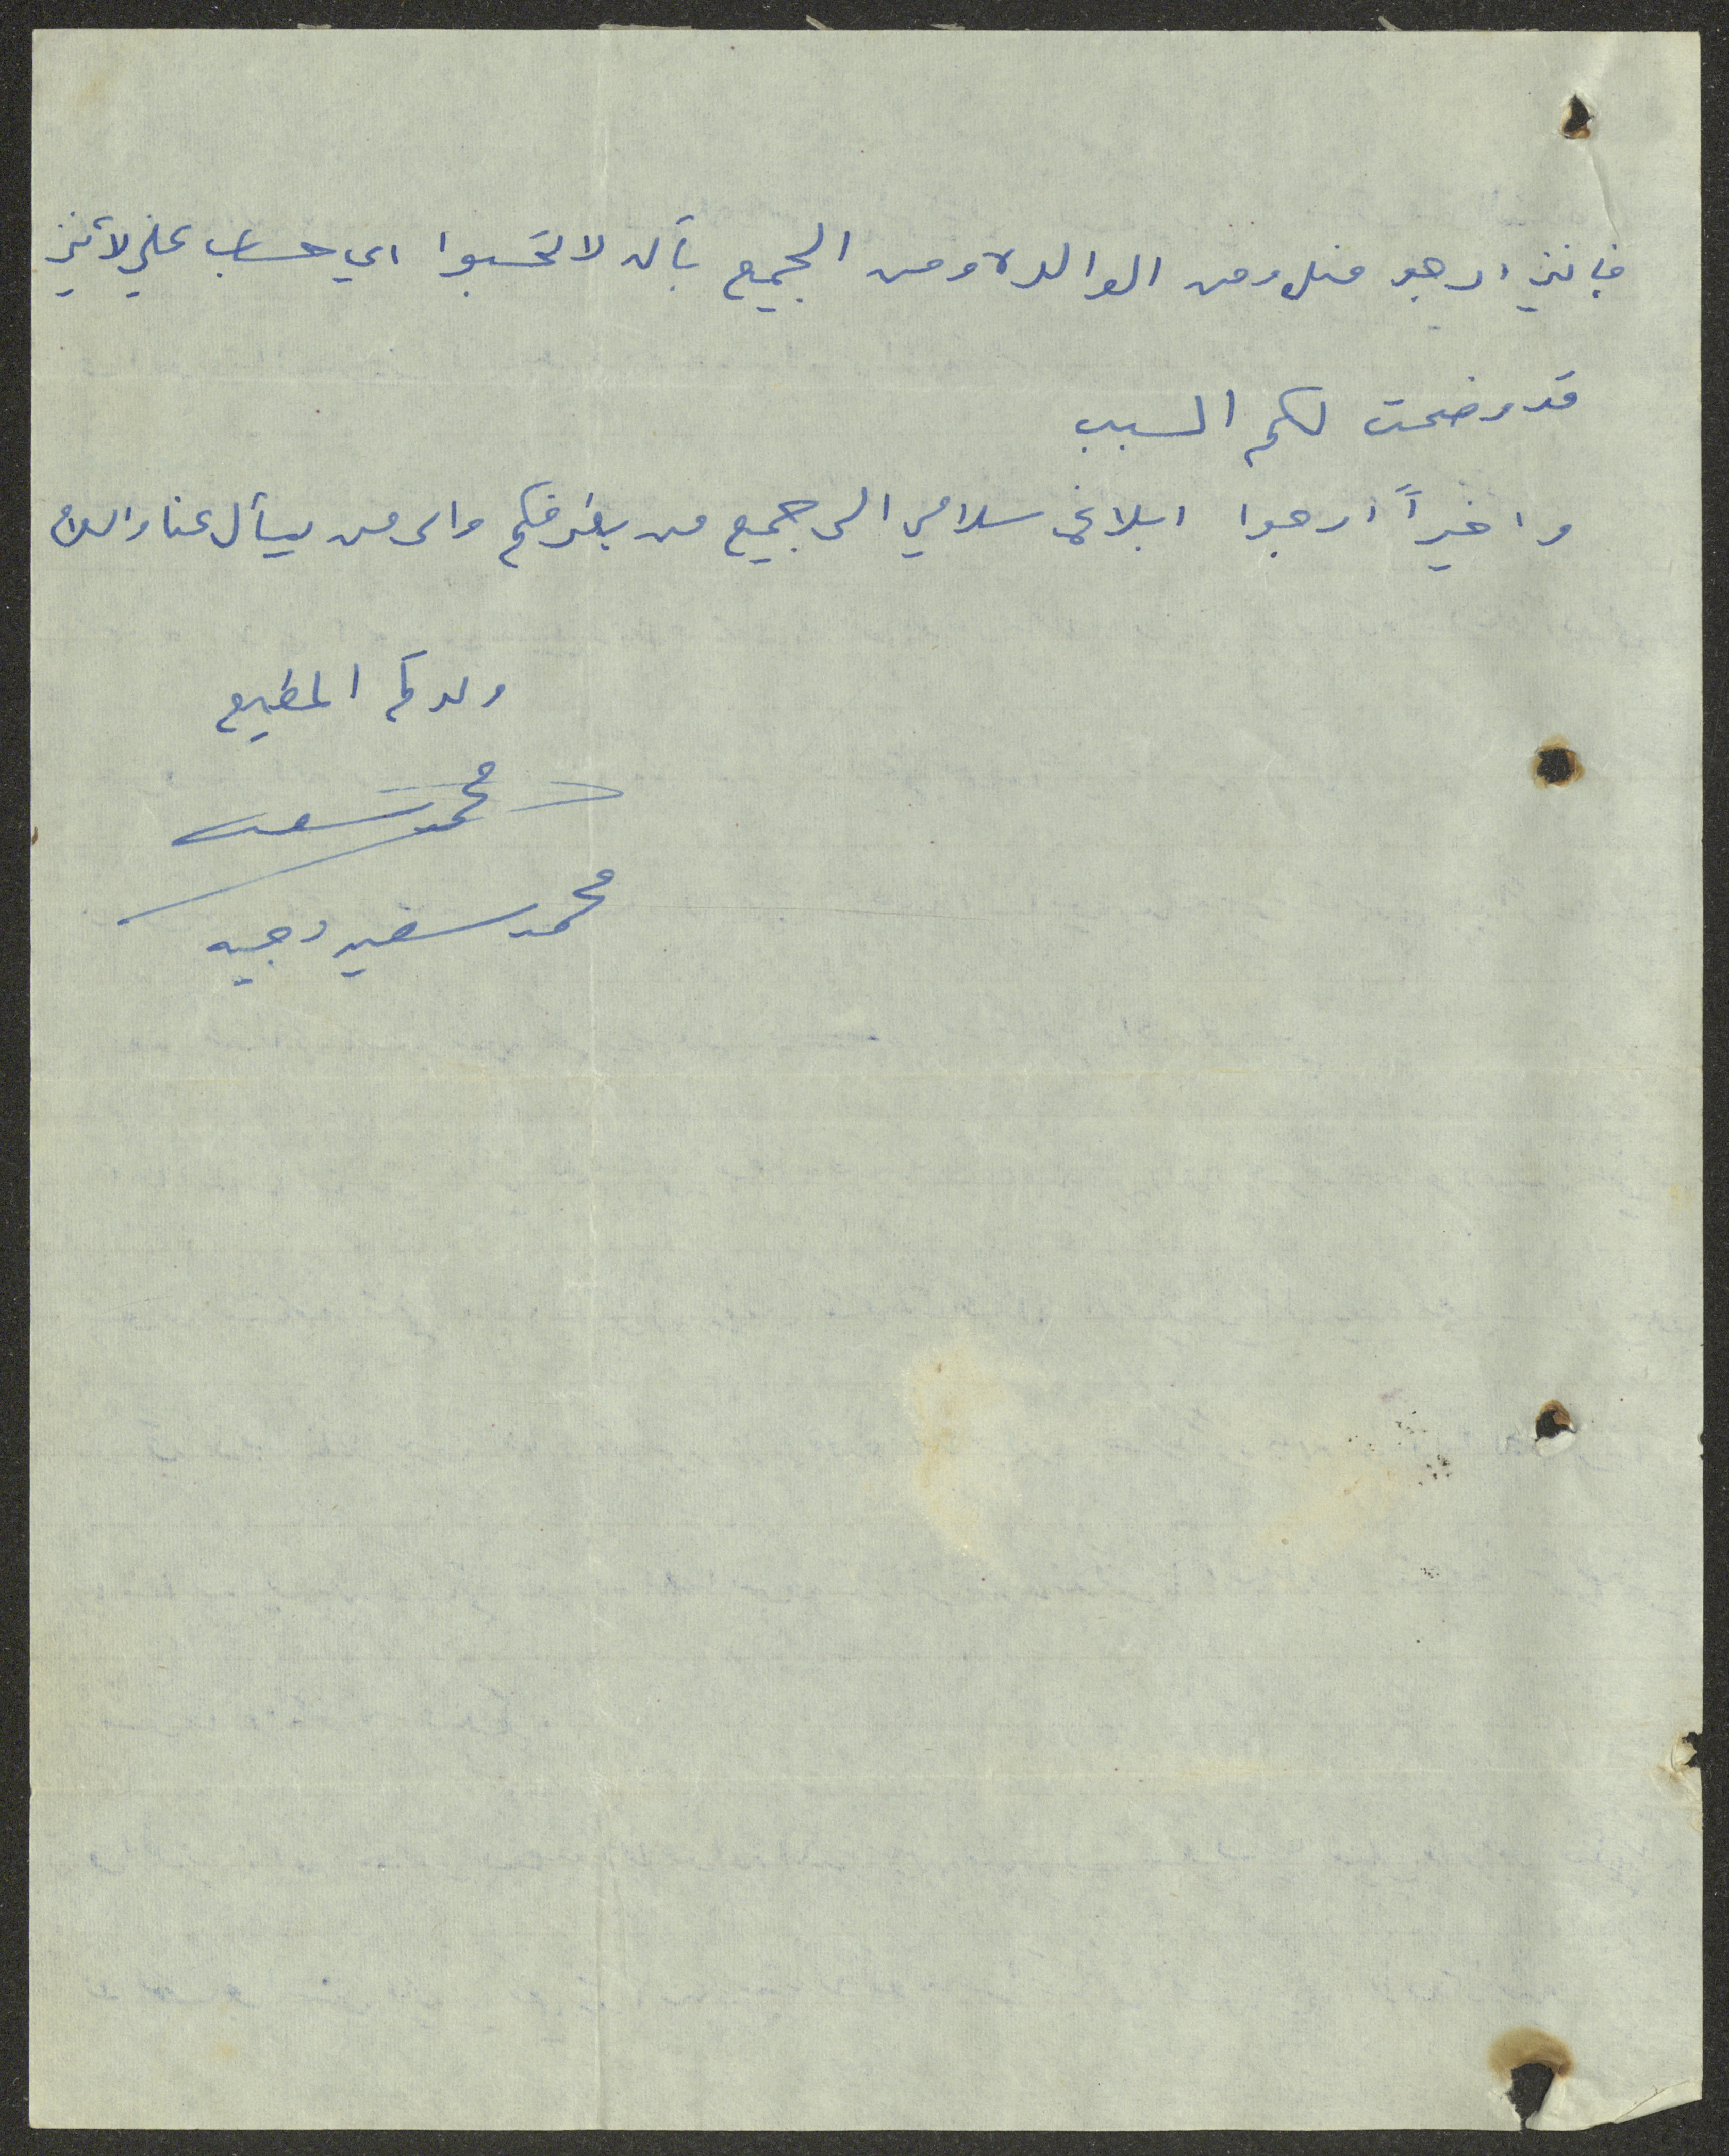 فإنني ارجو منك ومن الوالده ومن الجميع بأن لا تحسبوا اي حساب علي لأنني
قد وضحت لكم السبب
واخيراً ارجوا ابلاغ سلامي الى جميع من بطرفكم والى من يسأل عنا والسلام
ولدكم المطيع
محمد سعيد
محمد سعيد وجيه